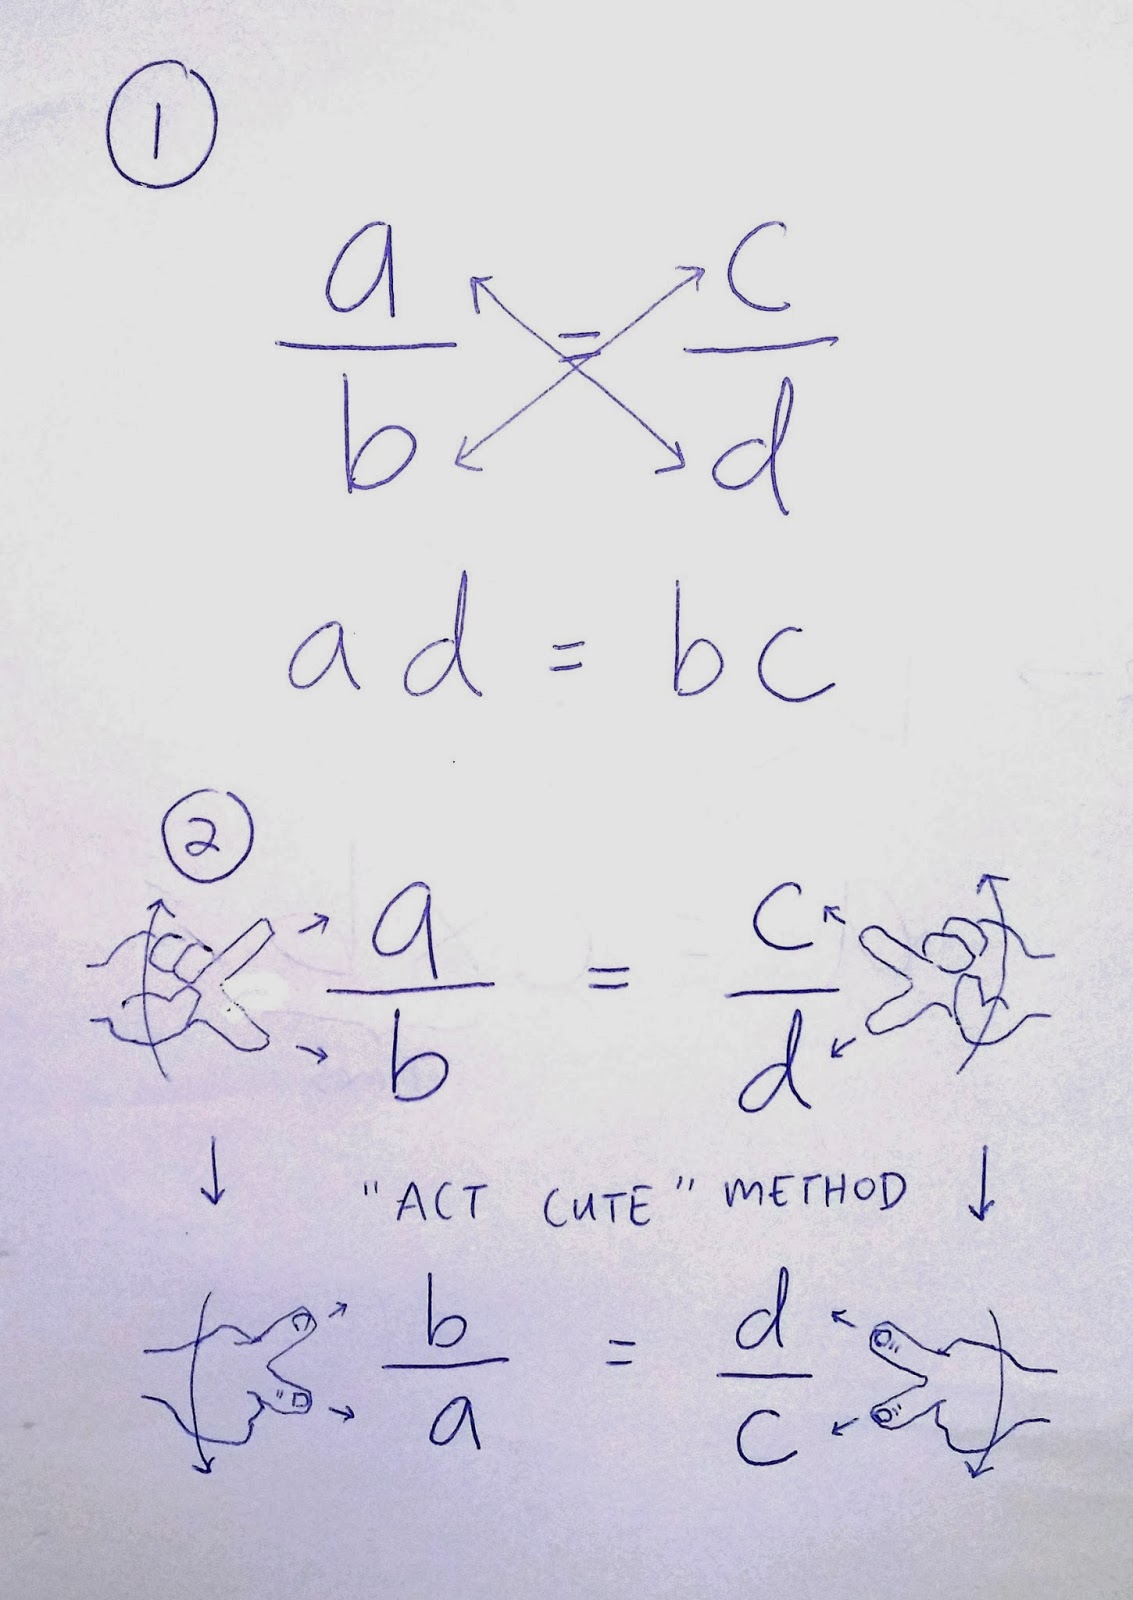 1
a/b = c/d
ad = bc
2
a/b = c/d
"ACT CUTE" METHOD
b/a = d/c